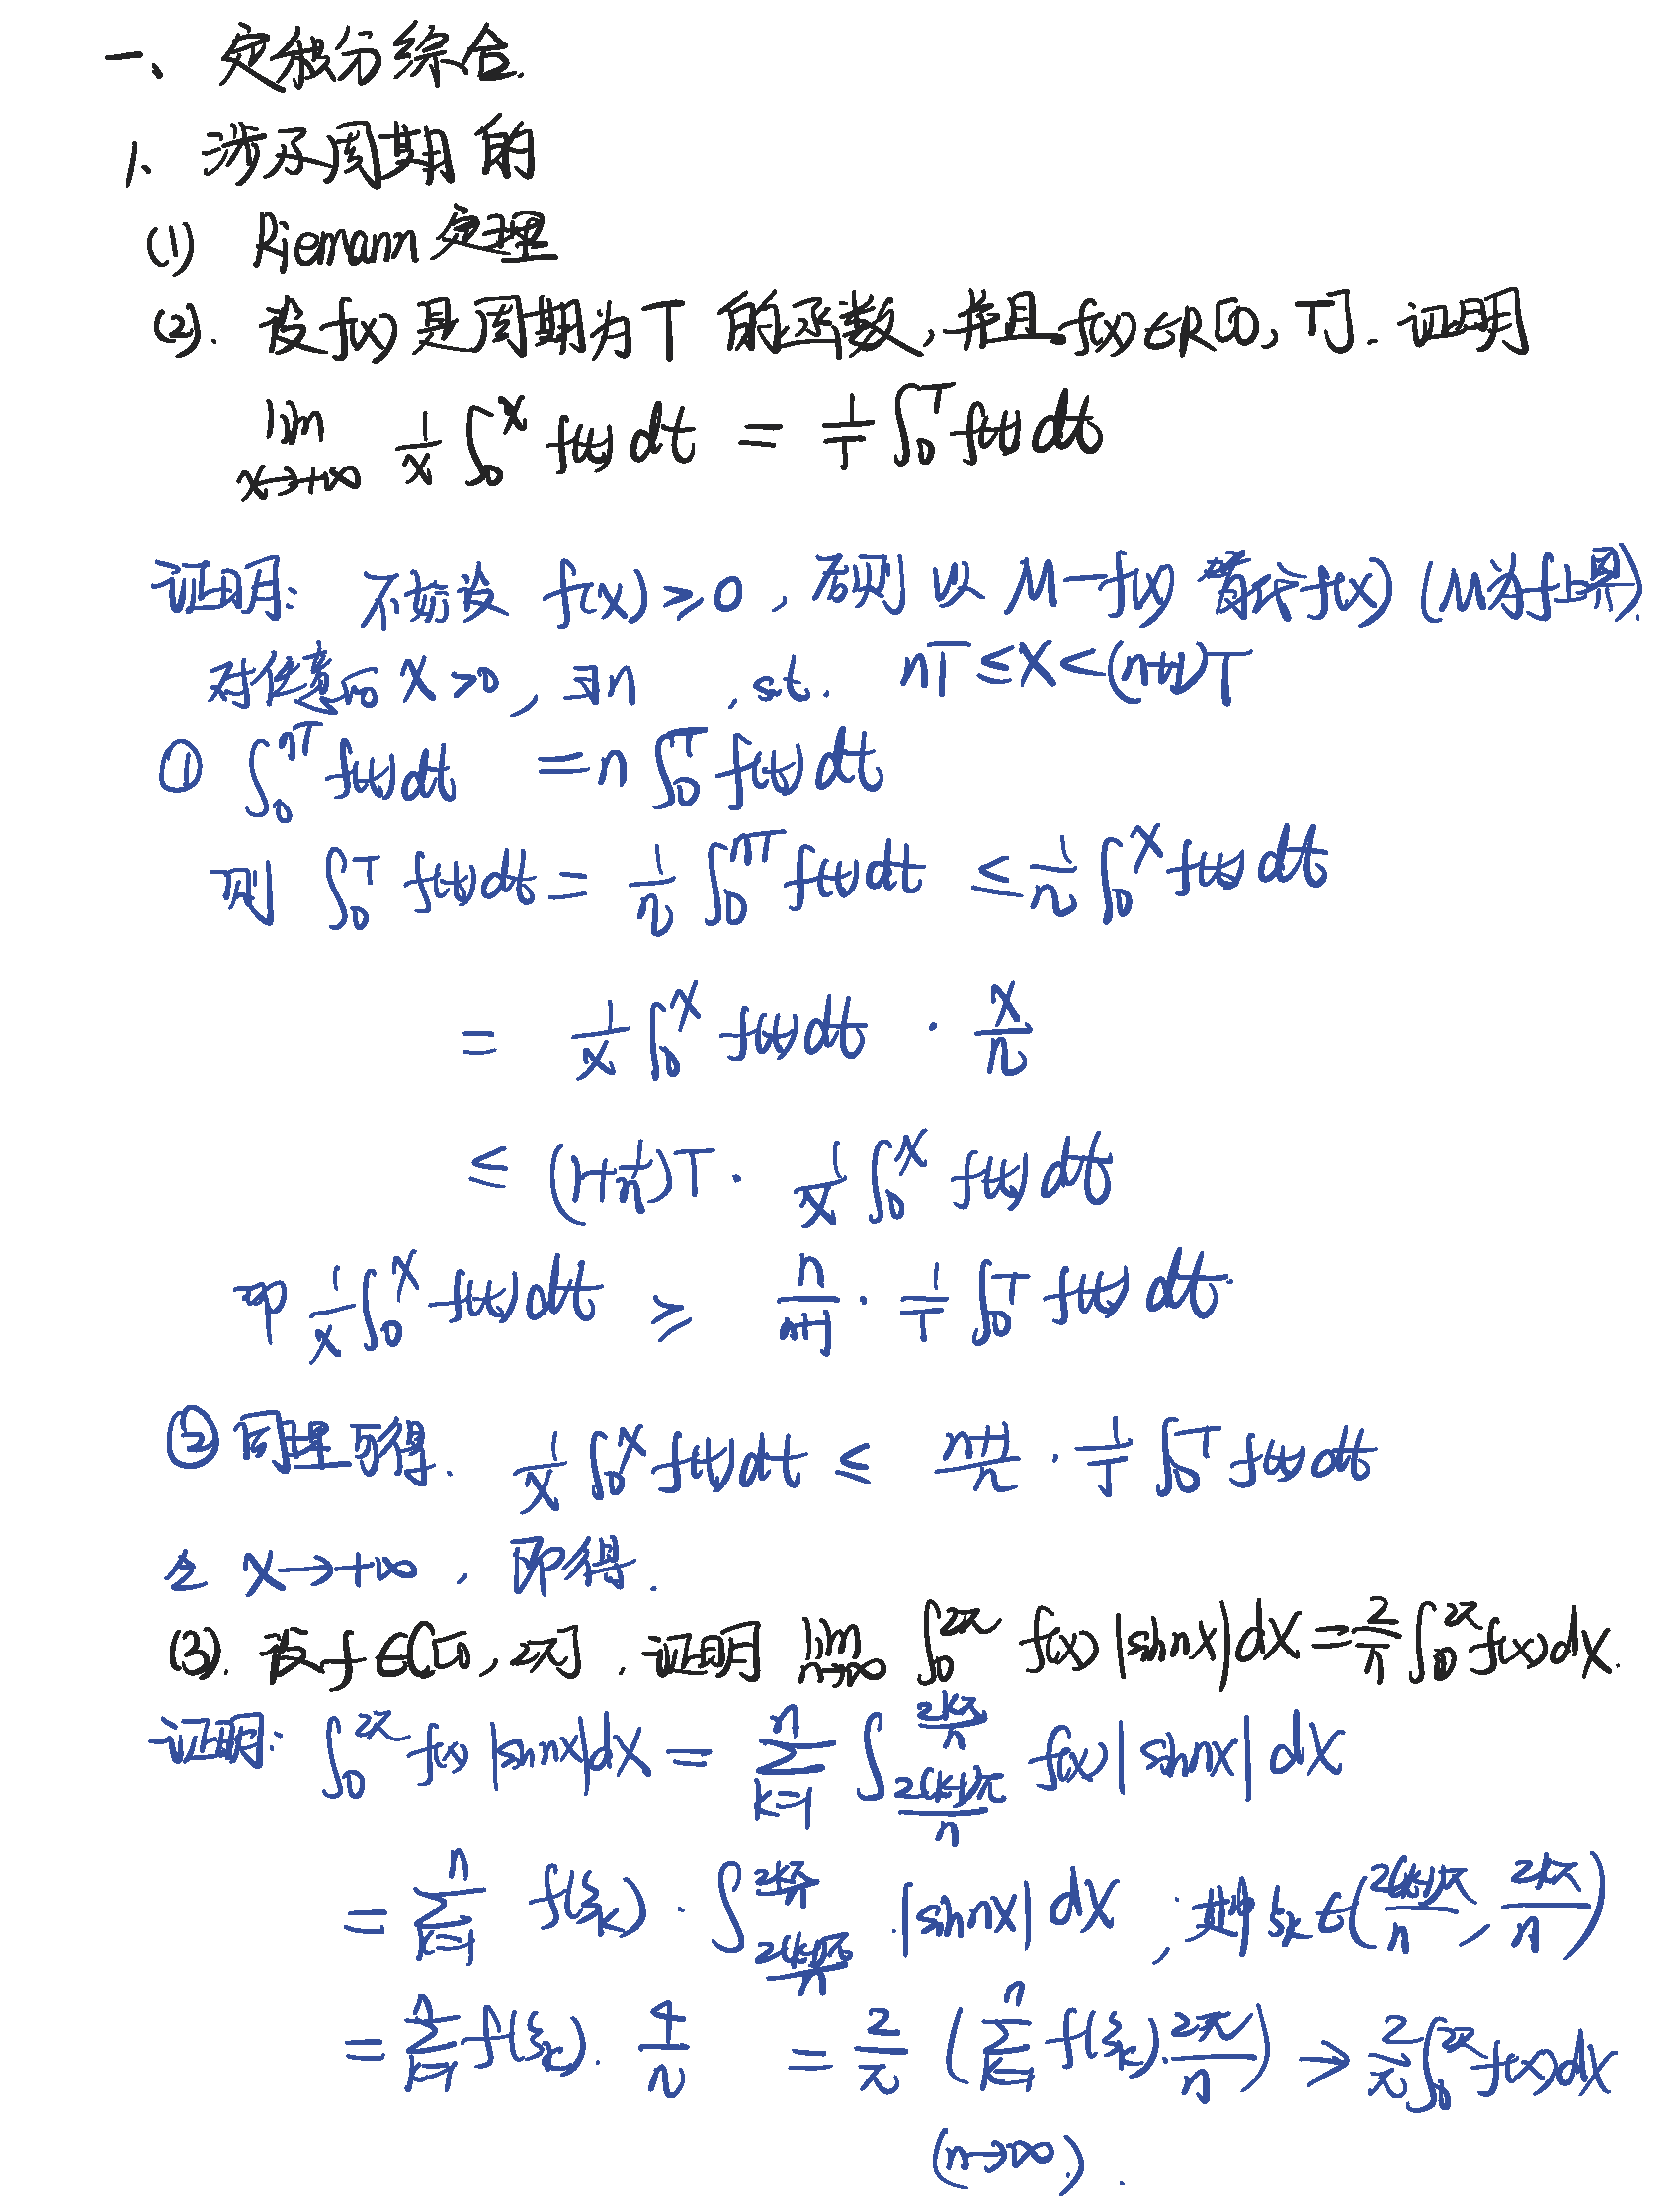 一、定积分综合.
1、涉及周期的
(1) Riemann定理
(2). 设f(x)是周期为T的函数,并且f(x)∈R[0,T]. 证明
lim_{x→+∞} 1/x ∫_0^x f(t)dt = 1/T ∫_0^T f(t)dt
证明: 不妨设 f(x)≥0, 否则以 M-f(x) 替代f(x) (M为f上界).
对任意的 x>0, ∃n , s.t. nT≤x<(n+1)T
① ∫_0^{nT} f(t)dt = n∫_0^T f(t)dt
则 ∫_0^T f(t)dt = 1/n ∫_0^{nT} f(t)dt ≤ 1/n ∫_0^x f(t)dt
= 1/x ∫_0^x f(t)dt · x/n
≤ (1+1/n)T · 1/x ∫_0^x f(t)dt
即 1/x ∫_0^x f(t)dt ≥ n/(n+1) · 1/T ∫_0^T f(t)dt.
② 同理可得. 1/x ∫_0^x f(t)dt ≤ (n+1)/n · 1/T ∫_0^T f(t)dt
令 x→+∞, 即得.
(3). 设f∈C[0,2π]. 证明 lim_{n→∞} ∫_0^{2π} f(x)|sin nx|dx = 2/π ∫_0^{2π} f(x)dx.
证明: ∫_0^{2π} f(x)|sin nx|dx = ∑_{k=1}^n ∫_{2(k-1)π/n}^{2kπ/n} f(x)|sin nx|dx
= ∑_{k=1}^n f(ξ_k) · ∫_{2(k-1)π/n}^{2kπ/n} |sin nx|dx, 其中 ξ_k∈(2(k-1)π/n, 2kπ/n)
= ∑_{k=1}^n f(ξ_k) · 4/n = 2/π (∑_{k=1}^n f(ξ_k)·2π/n) → 2/π ∫_0^{2π} f(x)dx
(n→∞).